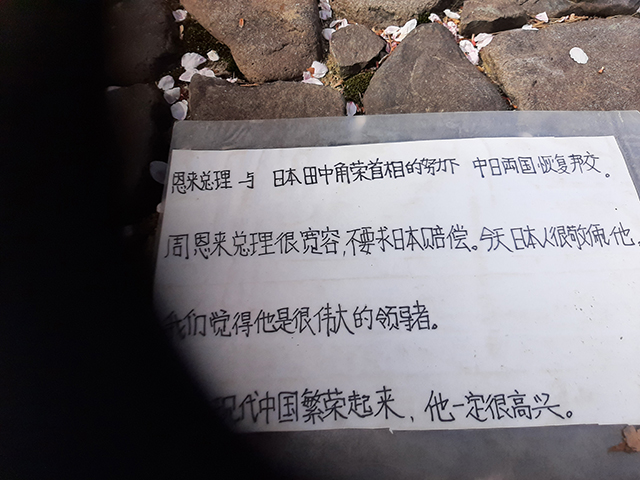 恩来总理与 日本田中角荣首相的努力下 中日两国恢复邦交。
周恩来总理很宽容,不要求日本赔偿。今天日本人很敬佩他
我们觉得他是很伟大的领导者。
现代中国繁荣起来,他一定很高兴。